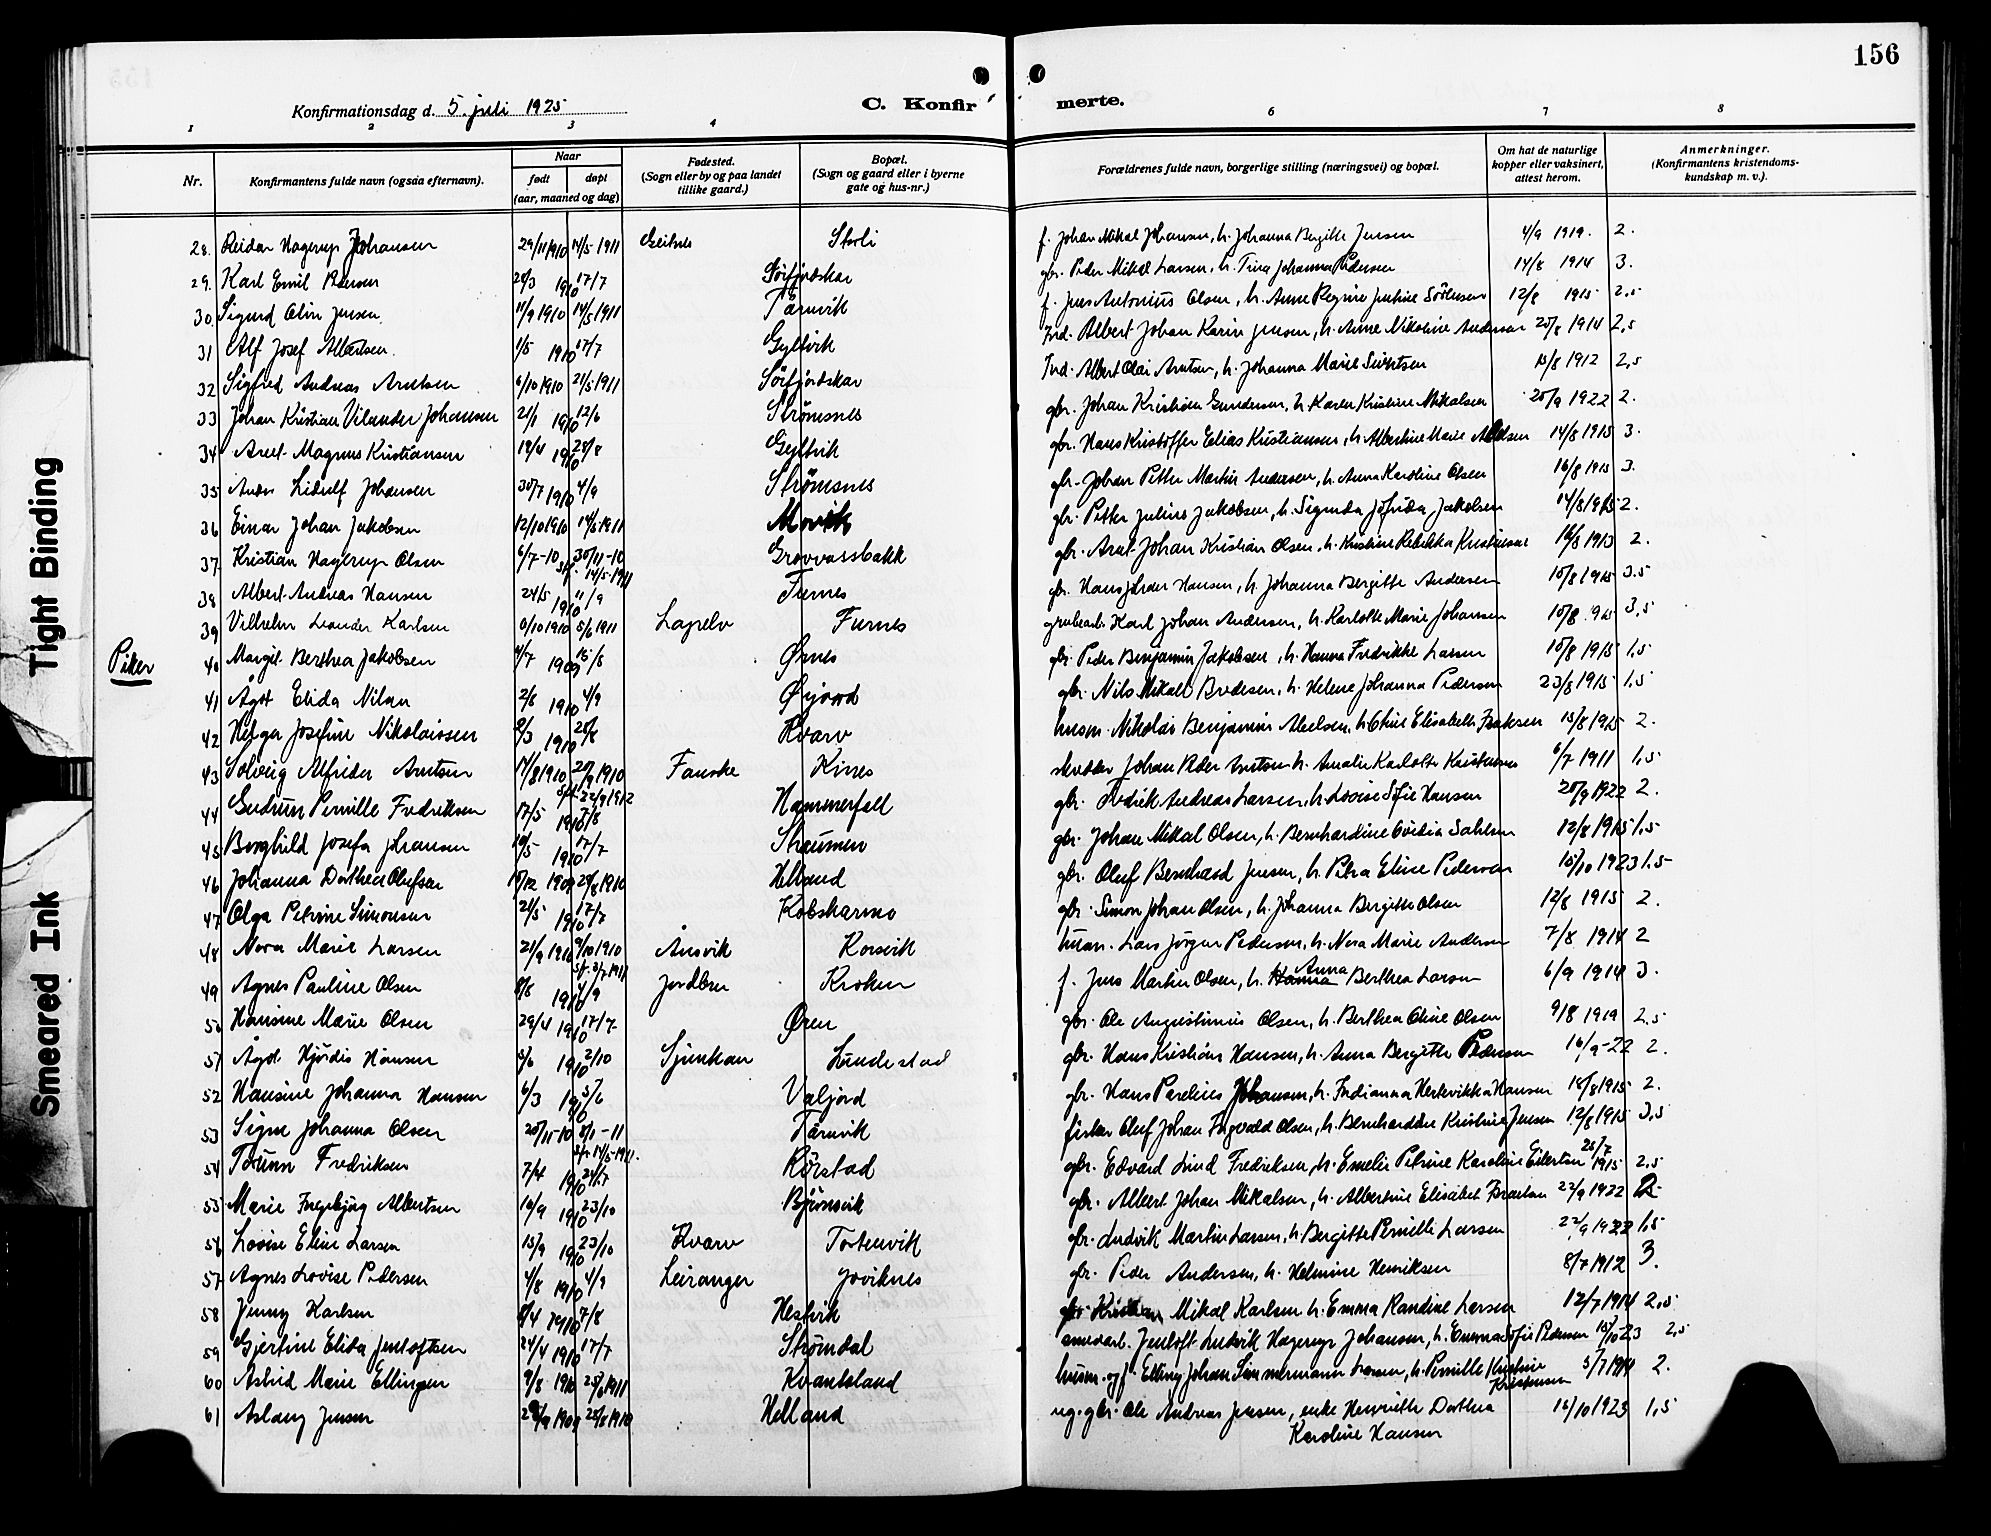 156
Konfirmationsdag d. 5. juli 1925
C. Konfirmerte.
1 2 3 4 6 7 8
Nr. Konfirmantens fulde navn (ogsaa efternavn). Naar født døpt (aar, maaned og dag) Fødested. (Sogn eller by og paa landet tillike gaard.) Bopæl. (Sogn og gaard eller i byerne gate og hus-nr.) Forældrenes fulde navn, borgerlige stilling (næringsvei) og bopæl. Om hat de naturlige kopper eller vaksinert, attest herom. Anmerkninger. (Konfirmantens kristendomskundskap m. v.).
28. Reidar Hagerup Johansen 29/11 1910 14/5 1911 Geitnes Storli f. Johan Mikal Johansen, h. Johanna Bergitte Jensen 4/9 1919. 2.
29. Karl Emil Pedersen 1910 17/7 Sørfjordskar gbr. Peder Mikal Larsen, h. Trine Johanna Pedersen 14/8 1914 3.
30. Sigurd Olin Jensen 1910 14/5 1911 Tårnvik f. Jens Antonius Olsen, h. Anne Regine Justine Sörensen 12/8 1915 2,5
31 Alf Josef Albertsen. 1/5 1910 17/7 Gyltvik Ind. Albert Johan Jensen, h. Anne Nikoline Andersen 25/8 1914 2,5
32 Sigfred Andreas Arntsen 6/10 1910 21/5 1911 Sörfjordskar Ind. Albert Olai Arntsen, h. Johanna Marie Sivertsen 13/8 1912 2,5
33 Johan Kristian Vilander Johansen 21/1 1910 12/6 Strömsnes gbr. Johan Kristian Gundersen, h. Karen Kristine Mikalsen 25/9 1922 2.
34 Arnt Magnus Kristiansen 19/4 1910 28/8 Gyltvik gbr. Hans Kristoffer Elias Kristiansen, h. Albertine Marie 14/8 1915 3.
35 Leidulf Johansen 30/7 1910 4/9 Strömsnes gbr. Johan Petter Martin Andersen, h. Anna Karoline Olsen 16/8 1915 3.
36 Einar Johan Jakobsen 12/10 1910 14/5 1911 Movik gbr. Petter Julius Jakobsen, h. Sigurda Jofrida Jakobsen 14/8 1915 2.
37 Kristian Hagerup Olsen 6/7-10 30/11-10 14/5-1911 Grovvassbakk gbr. Arnt Johan Kristian Olsen, h. Kristine Rebekka Kristiansen 16/8 1913 2.
38 Albert Andreas Hansen 24/5 1910 11/9 Furnes gbr. Hans Johan Hansen, h. Johanna Bergitte Andersen 15/8 1915 3.5
39 Vilhelm Leander Karlsen 1910 5/6 1911 Lapelv Furnes grubearb. Karl Johan Andersen, h. Karlotte Marie Johansen 10/8 3,5
Piker
40 Margit Berthea Jakobsen 4/7 1909 15/8 Ørnes gbr. Peder Benjamin Jakobsen, h. Hanna Fredrikke Larsen 10/8 1915 1,5
41 Ågot Elida Nilsen 2/8 1910 4/9 Øijord gbr. Nils Mikael Bredesen, h. Helene Johanna Pedersen 23/8 1915 1,5
42 Helga Josefine Nikolaissen 8/3 1910 28/8 Kvarv husm. Nikolai Benjamin Abelsen, h. Oline Elisabeth 15/8 1925 2.
43 Solveig Alfrida Arntsen 17/8 1910 1910 Fauske Kines skredder Johan Peder Arntsen h. Amalie Karlotte Kristensen 6/7 1911 1,5
44 Gudrun Pernille Fredriksen 17/5 1910 7/8 22/9 1912 Hammerfall gbr. Fredrik Andreas Larsen, h. Lovise Sofie Hansen 25/9 1922 2.
45 Borghild Josefa Johansen 19/5 1910 17/7 Straumen gbr. Johan Mikal Olsen, h. Bernhardine 12/8 1915 1,5
46 Johanna Dorthea Olufsen 15/12 1909 28/8 1910 Helland gbr. Oluf Bernhard Jensen, h. Petra Eline Pedersen 15/10 1923 1.5
47 Olga Petrine Simonsen 21/5 1910 17/7 Kobskarmo gbr. Simon Johan Olsen, h. Johanna Bergitte Olsen 12/8 1915 2.
48 Nora Marie Larsen 21/9 1910 9/10 1910 3/7 1911 Ånsvik Korsvik husm. Lars Jörgen Pedersen, h. Nora Marie Andersen 7/8 1914 2
49 Agnes Pauline Olsen 1910 4/9 Jordbru Kroken f. Jens Martin Olsen, h. Hanna Anna Berthea Larsen 6/9 1914 3.
50 Hansine Marie Olsen 29/4 1910 17/7 Øren gbr. Ole Augustinius Olsen, h. Berthea Oline Olsen 9/8 1919 2,5
51 Ågot Hjördis Hansen 5/6 1910 2/10 Sjunkan Lundestad gbr. Hans Kristian Hansen, h. Anna Bergitte Pedersen 16/9-22 2.
52 Hansine Johanna Hansen 6/3 1910 5/6 Valjord gbr. Hans Parelius Johansen, h. Indianna Hertevikka Hansen 18/8 1915 2.
53 Signe Johanna Olsen 20/11-10 8/1-11 14/5-1911. Tårnvik fisker Oluf Johan Ingvald Olsen, h. Bernharddine Kristine Jensen 12/8 1915 3,5
54 Torunn Fredriksen 7/4 1910 24/7 Rørstad gbr. Edvard Lind Fredriksen, h. Emelie Petrine Karoline Eilertsen 28/7 1915 2,5
55 Marie Ingebjørg Albertsen 10/9 1910 23/10 Bjørnsvik gbr. Albert Johan Mikalsen, h. Albertine Elisabet 22/9 1922 2
56 Lovise Eline Larsen 15/9 1910 23/10 Kvarv Tortenvik gbr. Ludvik Martin Larsen, h. Bergitte Pernille Larsen 22/9 1922 1,5
57 Agnes Lovise Pedersen 4/8 1910 4/9 Leiranger Joviknes gbr. Peder Andersen, h. Helmine Henriksen 8/7 1912 3.
58 Jenny Karlsen 8/4 1910 7/8 Hestvik gbr. Mikal Karlsen h. Emma Randine Larsen 12/7 1914 2,5
59 Gjertine Elida Jentoftsen 24/4 1910 17/7 Strømdal Jentoft Ludvik Hagerup Johansen, h. Emma Sofie Pedersen 15/10 23 2,5
60 Astrid Marie Ellingsen 9/8 1910 25/6 1911 Kvantoland husm. og f. Elling Johan Larsen, h. Pernille Kristine Kristensen 5/7 1914 2.
61 Aslaug Jensen 1909 28/8 1910 Helland gbr. Ole Andreas Jensen, enke Henriette Dorthea Karoline Hansen 15/10 1923 1,5
Tight Binding
Smeared Ink